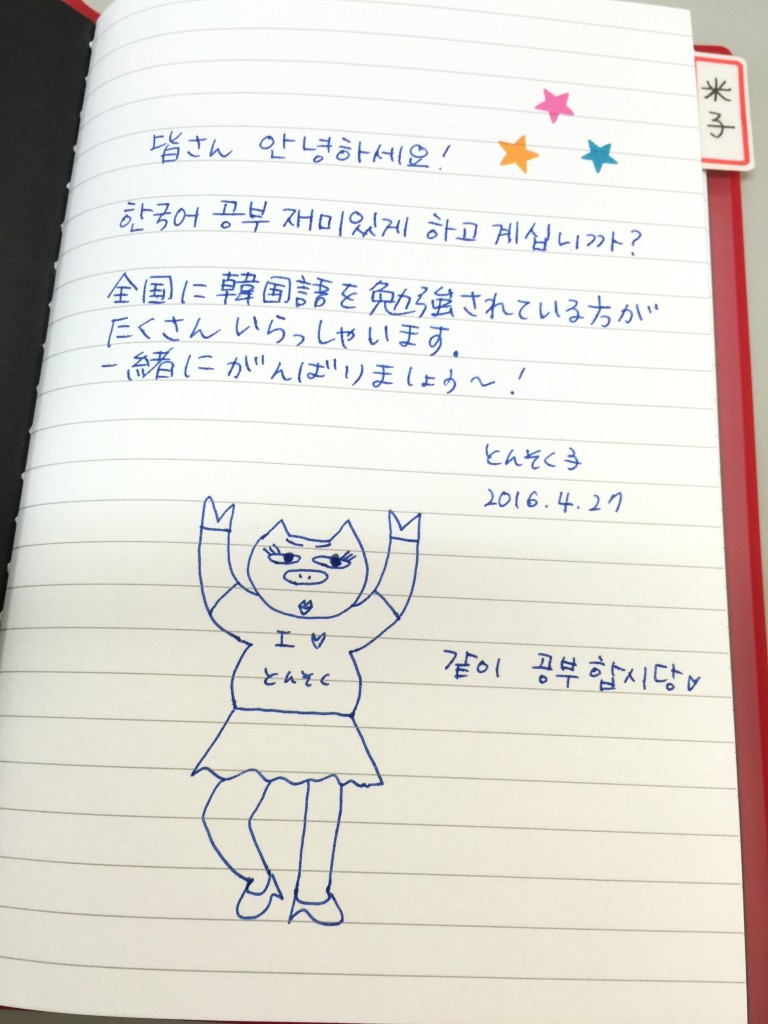 米子
皆さん 안녕하세요!
한국어 공부 재미있게 하고 계십니까?
全国に韓国語を勉強されている方が
たくさんいらっしゃいます。
一緒にがんばりましょう～!
とんそく子
2016.4.27
I ♡
とんそく
같이 공부합시당♡